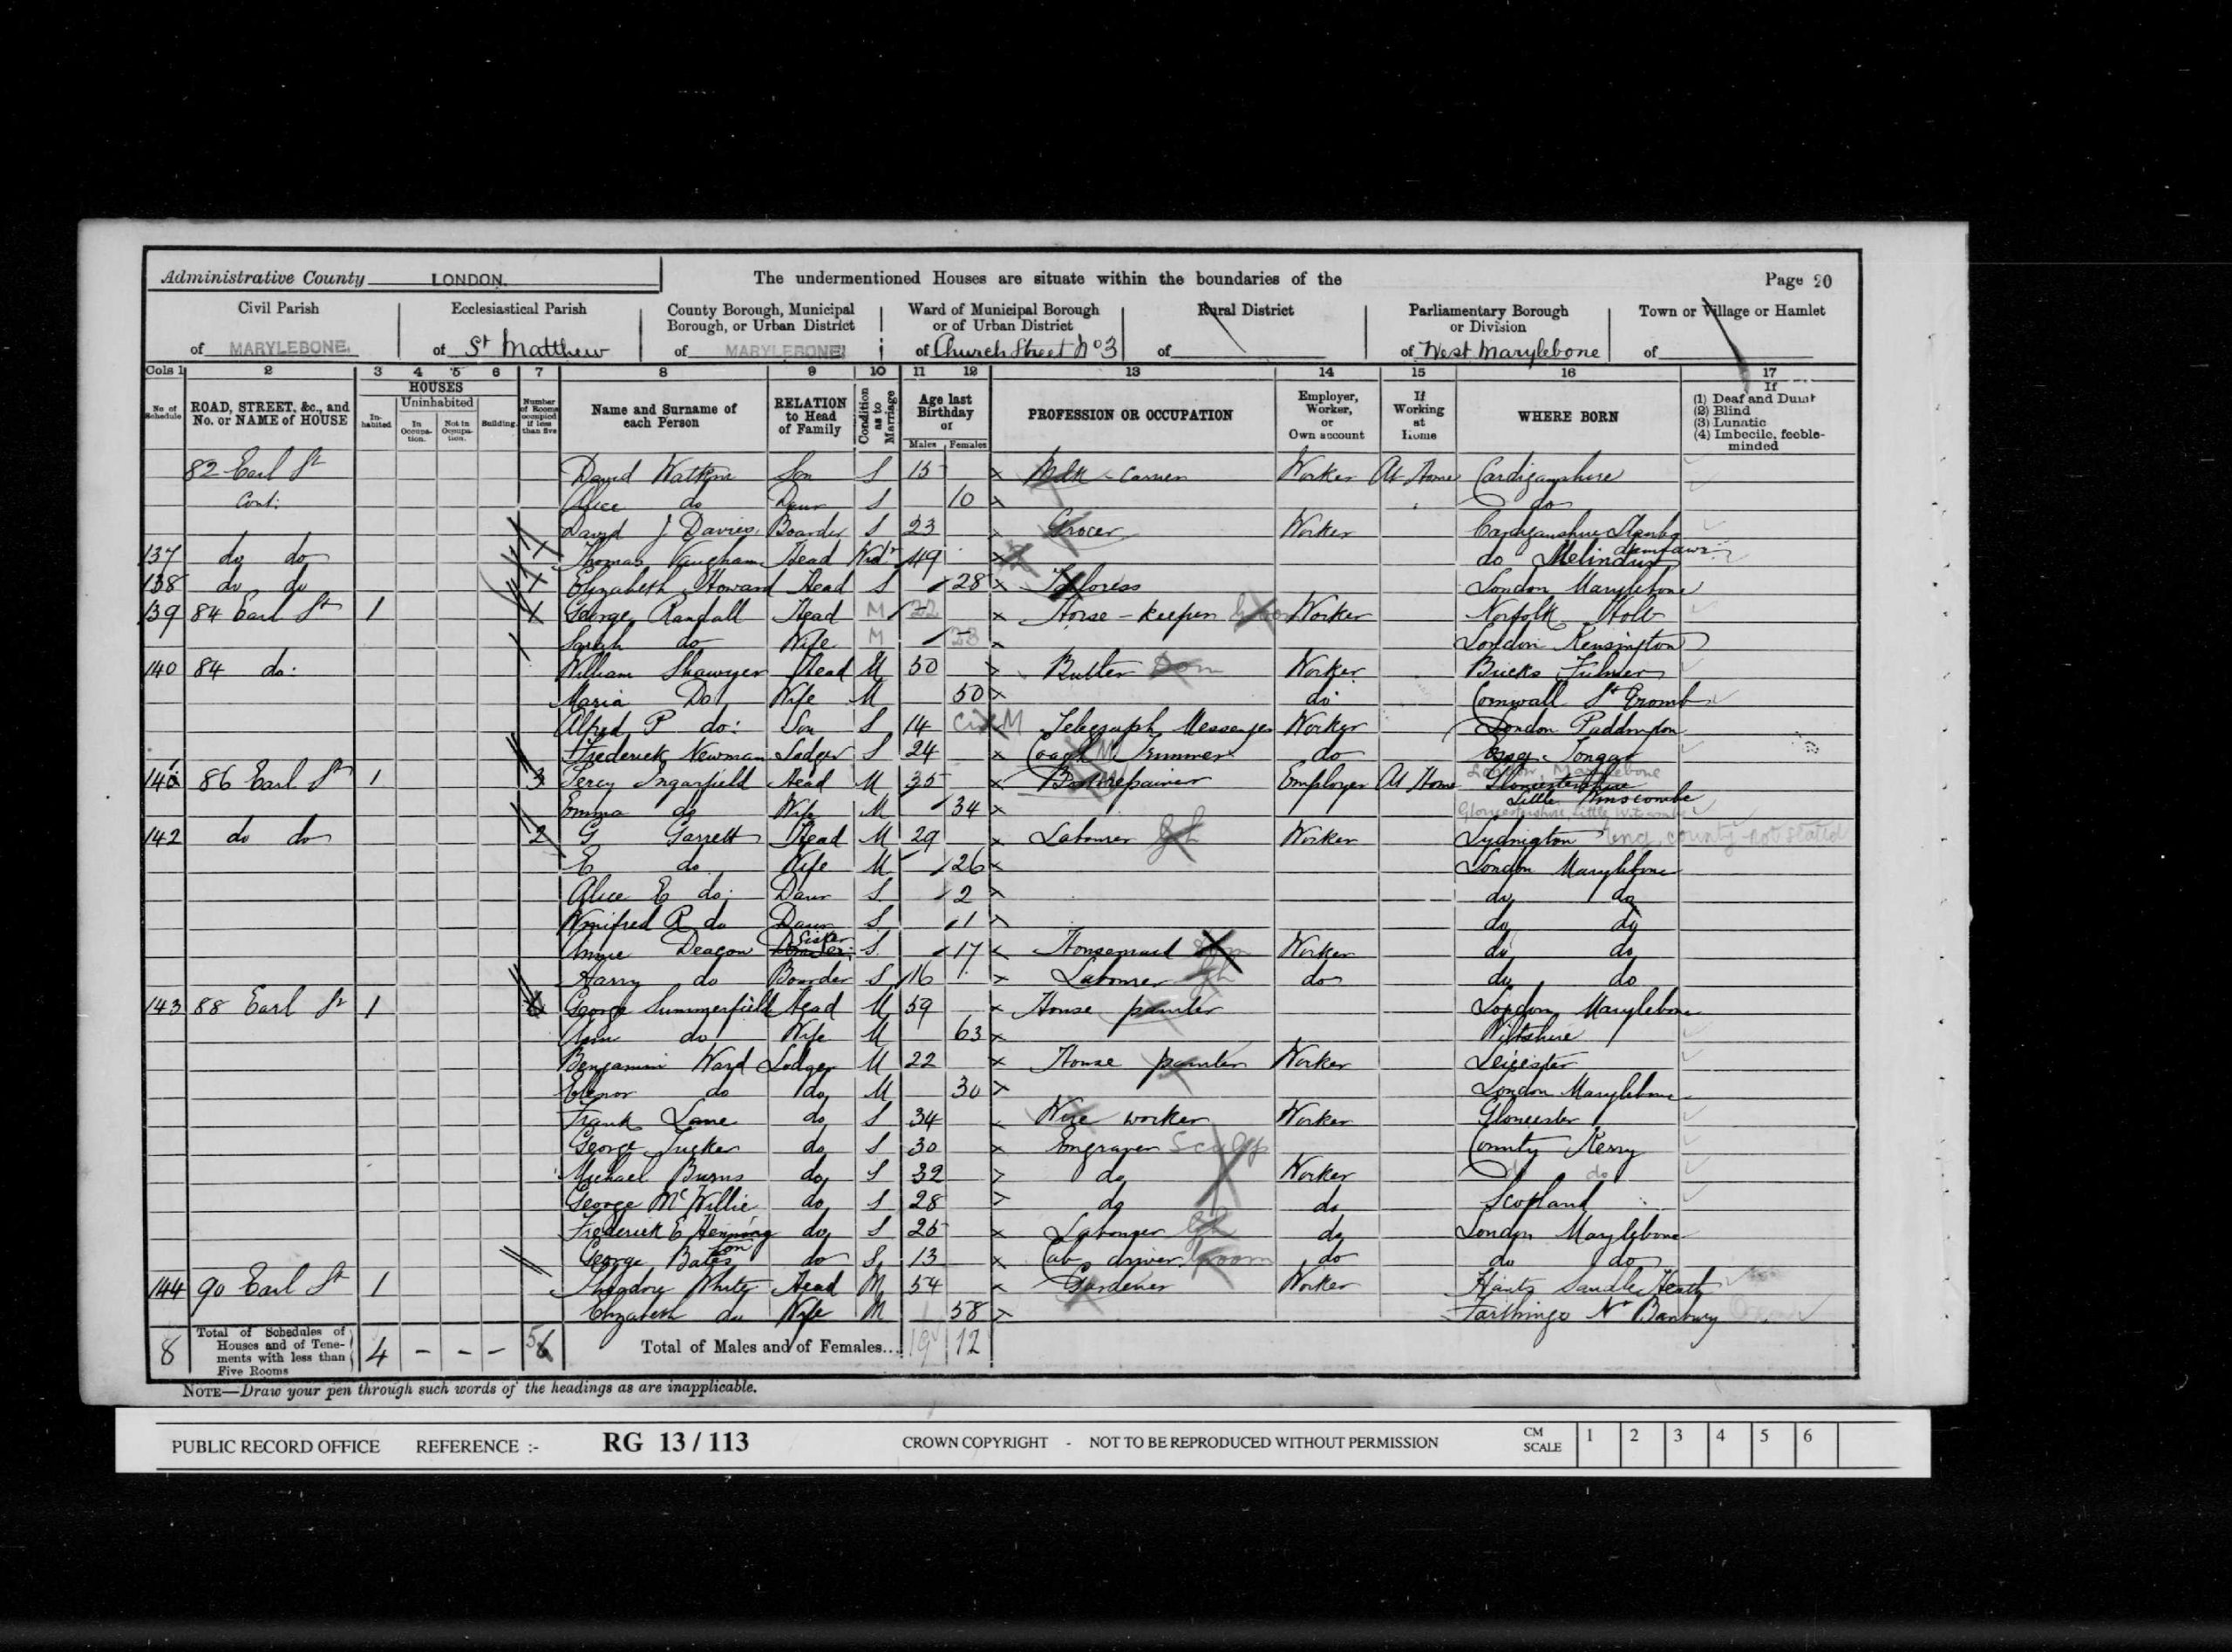 Administrative County LONDON The undermentioned Houses are situate within the boundaries of the Page 20
Civil Parish of MARYLEBONE
Ecclesiastical Parish of St Matthew
County Borough, Municipal Borough, or Urban District of MARYLEBONE
Ward of Municipal Borough or of Urban District of Church Street No 3
Rural District of
Parliamentary Borough or Division of West Marylebone
Town or Village or Hamlet of
Cols 1 2 3 4 5 6 7 8 9 10 11 12 13 14 15 16 17
No of Schedule
ROAD, STREET, &c., and No. or NAME of HOUSE
HOUSES
Inhabited
Uninhabited
In Occupation.
Not in Occupation.
Building
Number of Rooms occupied if less than five
Name and Surname of each Person
RELATION to Head of Family
Condition as to Marriage
Age last Birthday of
Males Females
PROFESSION OR OCCUPATION
Employer, Worker, or Own account
If Working at Home
WHERE BORN
If
(1) Deaf and Dumb
(2) Blind
(3) Lunatic
(4) Imbecile, feeble-minded
82 Earl St David Watkins Son S 15 Milk carrier Worker At Home Cardiganshire
Cont: Alice do Daur S 10 do
David J Davies Boarder S 23 Grocer Worker Cardiganshire
137 do do 1 Thomas Vaughan Head Widr 49 do
138 do do 1 Elizabeth Howard Head S 28 Tailoress London Marylebone
139 84 Earl St 1 1 George Randall Head M 22 Horse-keeper Groom Worker Norfolk Holt
Sarah do Wife M 23 London Kensington
140 84 do: William Shawyer Head M 50 Butler Dom Worker Bucks Fulmer
Maria Do Wife M 50 do Cornwall St
Alfred P do: Son S 14 Civ M Telegraph Messenger Worker London Paddington
Frederick Newman Lodger S 24 Coach Trimmer do Ongar
141 86 Earl St 1 3 Percy Ingarfield Head M 35 Bootrepairer Employer At Home London, Marylebone
Gloucestershire
Little
Emma do Wife M 34 Gloucestershire, Little Witcombe
142 do do 2 G Garrett Head M 29 Labourer Worker Lydington Eng. county not stated
E do Wife M 26 London Marylebone
Alice E do: Daur S 2 do do
Winifred R do Daur S 1 do do
Annie Deacon Sister S 17 Housemaid Dom Worker do do
Harry do Boarder S 16 Labourer do do do
143 88 Earl St 1 George Summerfield Head M 59 House painter London Marylebone
Ann do Wife M 63 Wiltshire
Benjamin Ward Lodger M 22 House painter Worker Leicester
Elenor do do M 30 London Marylebone
Frank Lane do S 34 Wire worker Worker Gloucester
George Tucker do S 30 Engraver County Kerry
Michael Burns do S 32 do Worker do do
George McWillie do S 28 do do Scotland
Frederick E Henning do S 25 Labourer do London Marylebone
George Bateson do S 13 Cab driver Groom do do do
144 90 Earl St 1 Theodore White Head M 54 Gardener Worker Hants Sandle Heath
Elizabeth do Wife M 58 Farthingo Nr Banbury
8 Total of Schedules of Houses and of Tenements with less than Five Rooms 4 - - - 5 Total of Males and of Females... 19 12
NOTE—Draw your pen through such words of the headings as are inapplicable.
PUBLIC RECORD OFFICE REFERENCE :- RG 13 / 113 CROWN COPYRIGHT - NOT TO BE REPRODUCED WITHOUT PERMISSION CM SCALE 1 2 3 4 5 6